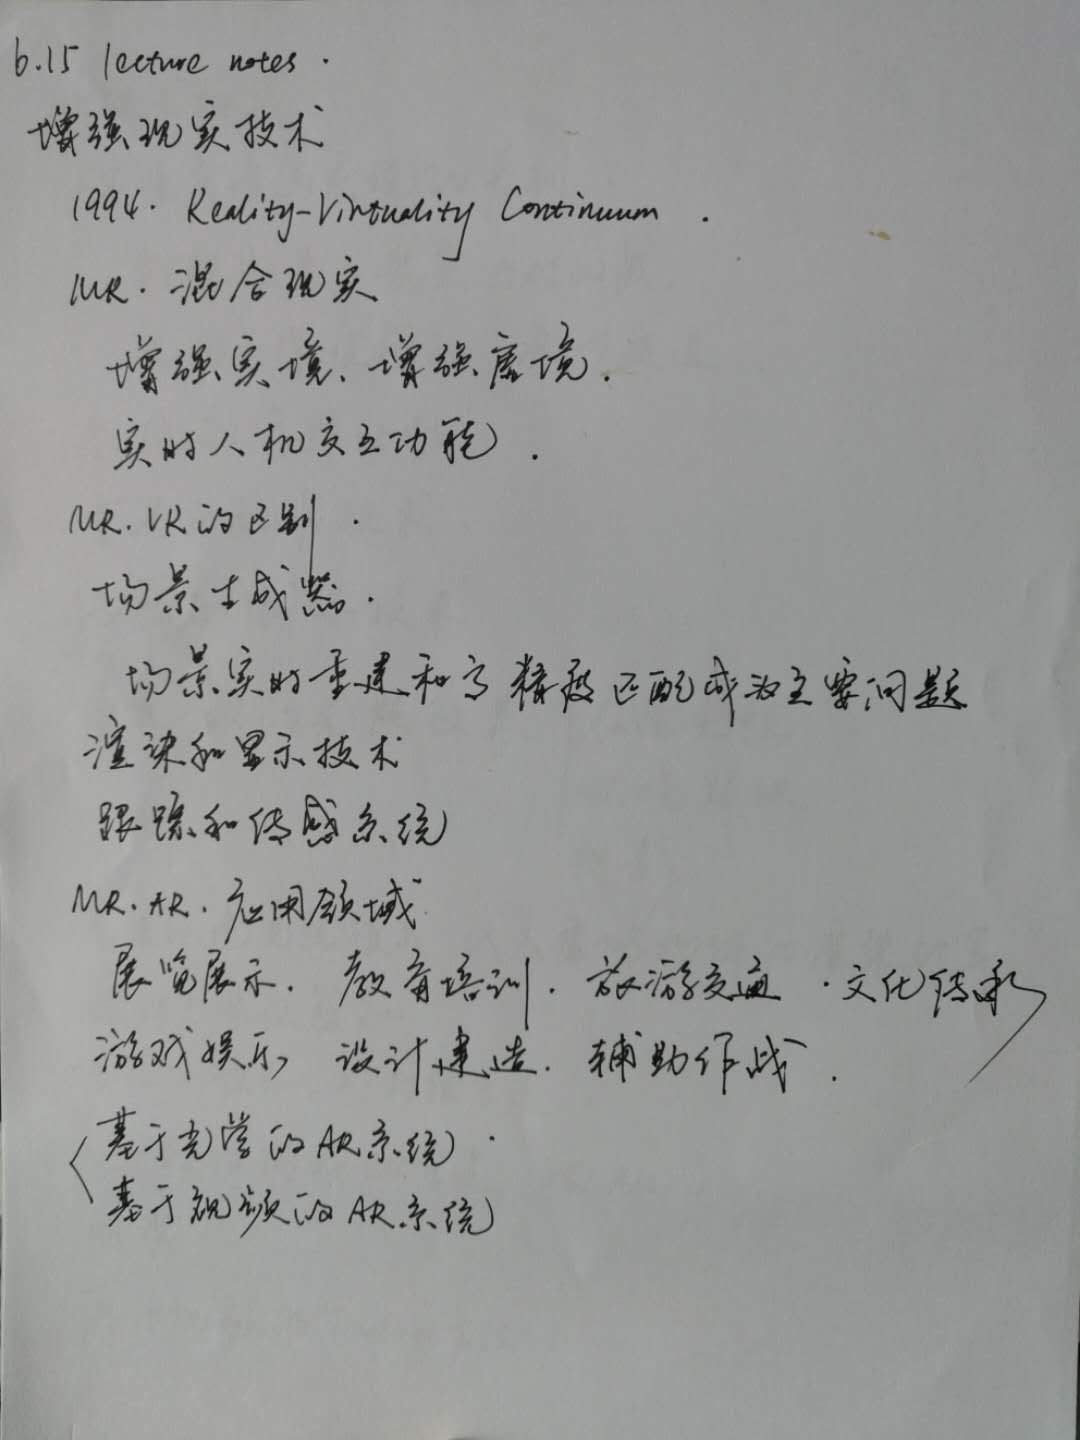 6.15 lecture notes.
增强现实技术
1994. Reality-Virtuality Continuum.
MR. 混合现实
增强实境、增强虚境.
实时人机交互功能.
MR. VR的区别.
场景生成器.
场景实时重建和高精度匹配成为主要问题
渲染和显示技术
跟踪和传感系统
MR. AR. 应用领域
展览展示. 教育培训. 旅游交通. 文化传承
游戏娱乐, 设计建造. 辅助作战.
基于光学的AR系统.
基于视频的AR系统